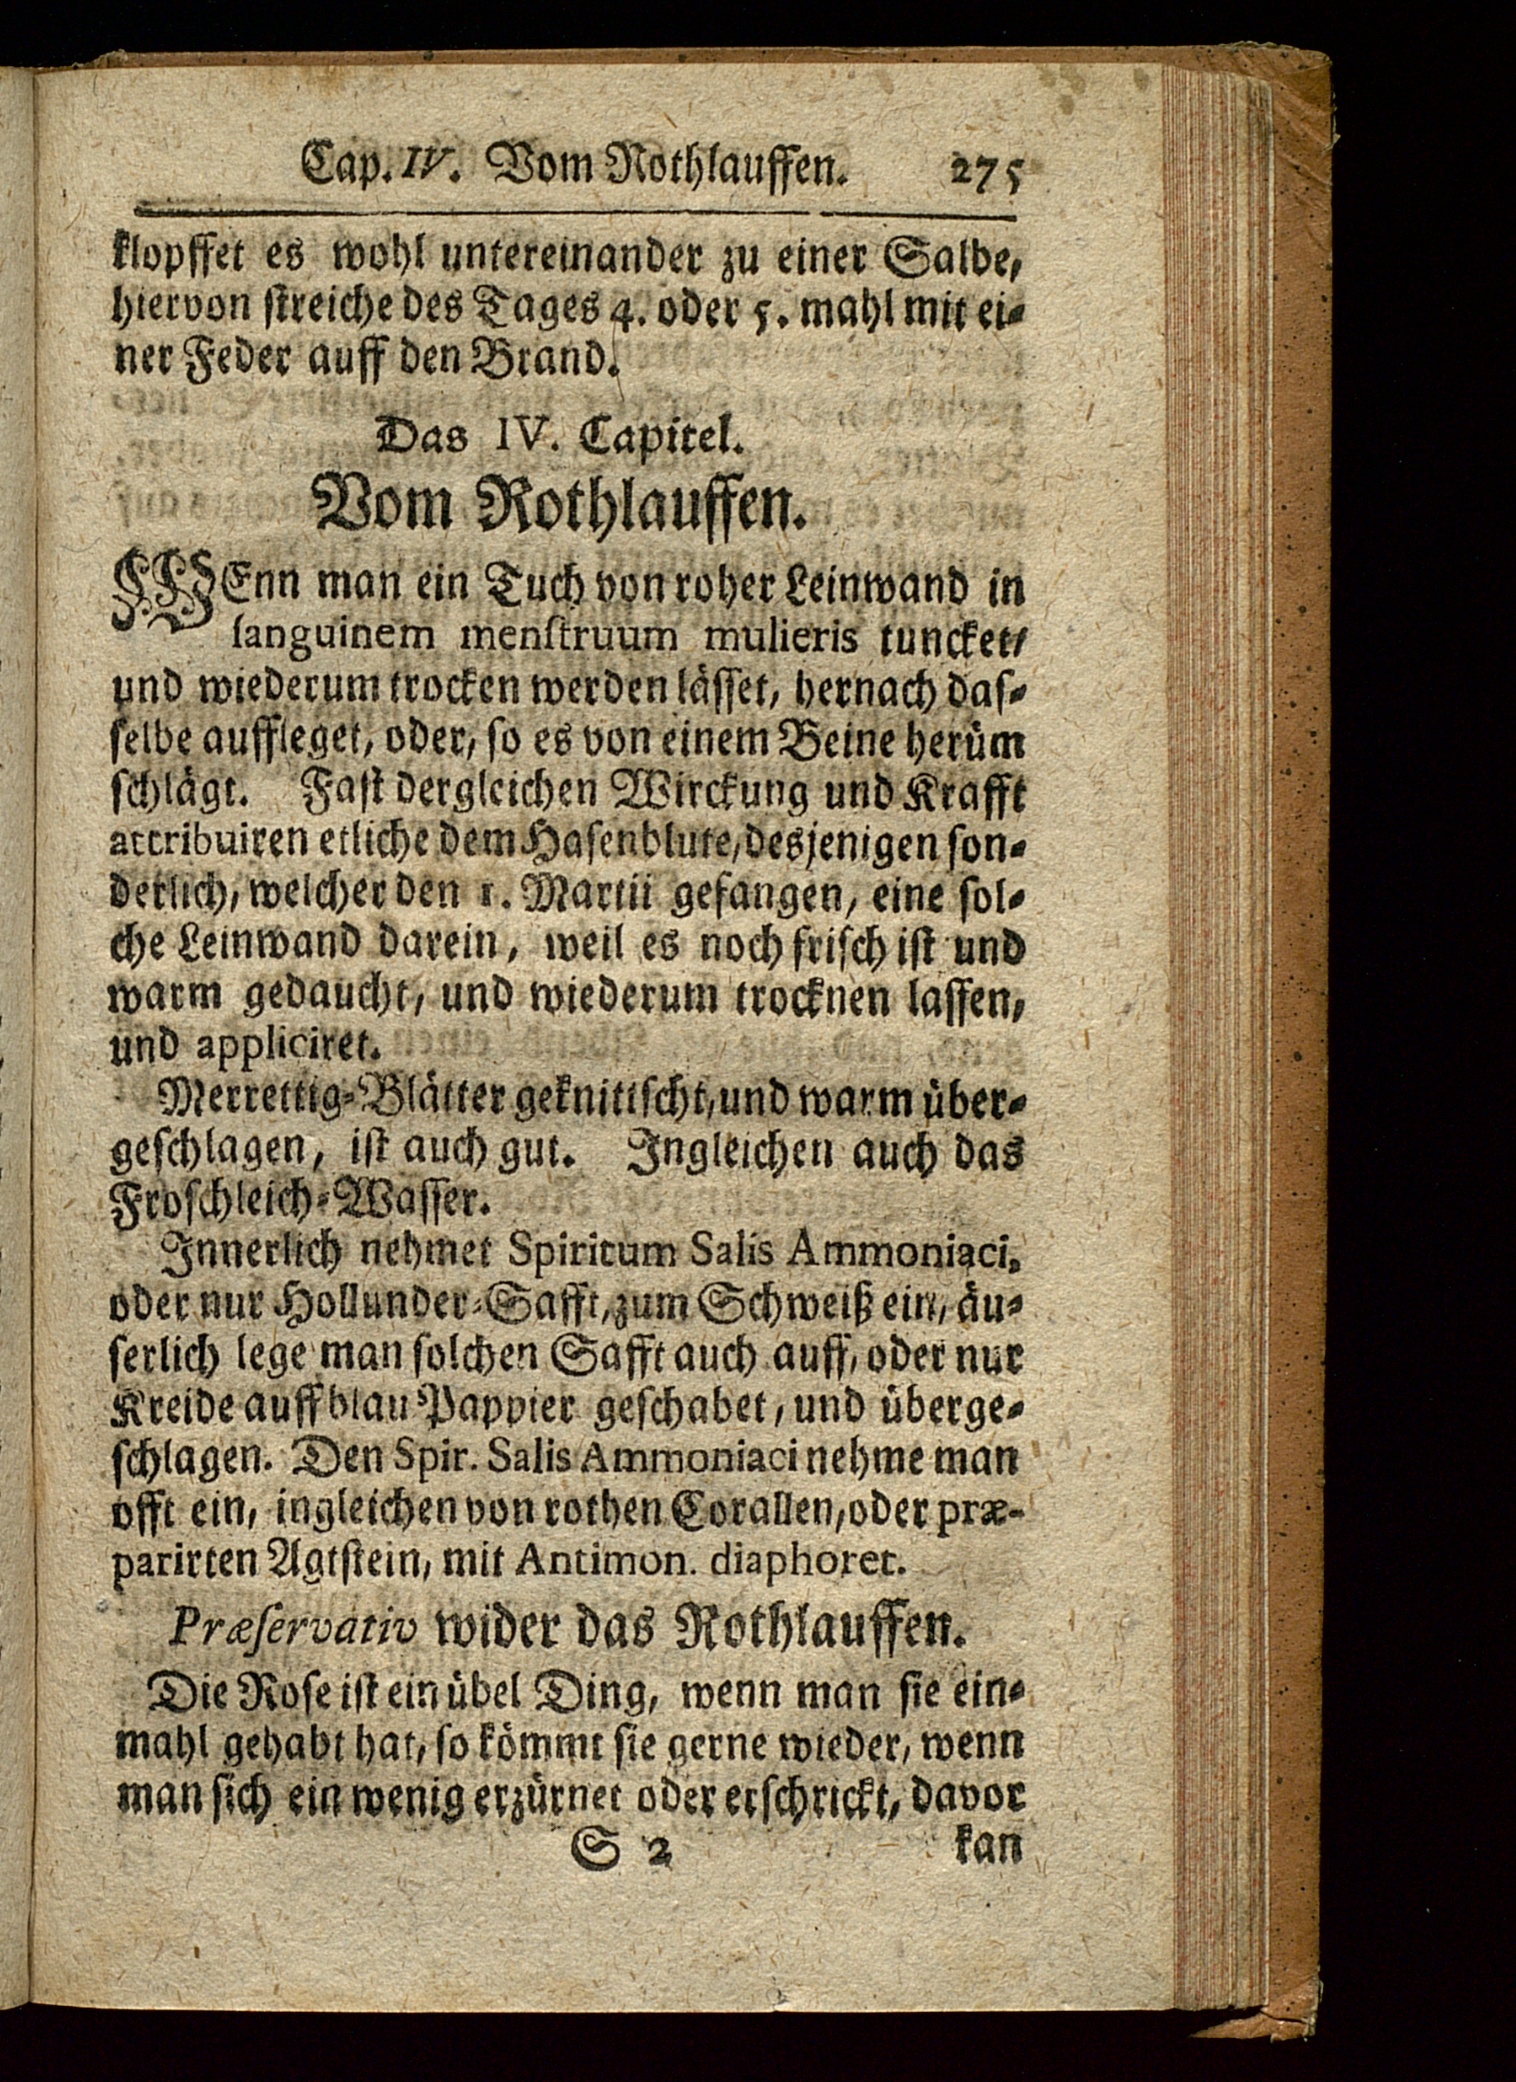 Cap. IV. Vom Rothlauffen. 275
klopffet es wohl untereinander zu einer Salbe,
hiervon streiche des Tages 4. oder 5. mahl mit ei-
ner Feder auff den Brand.
Das IV. Capitel.
Vom Rothlauffen.
WEnn man ein Tuch von roher Leinwand in
sanguinem menstruum mulieris tuncket/
und wiederum trocken werden lässet, hernach das-
selbe auffleget, oder, so es von einem Beine herüm
schlägt. Fast dergleichen Wirckung und Krafft
attribuiren etliche dem Hasenblute, desjenigen son-
derlich, welcher den 1. Martii gefangen, eine sol-
che Leinwand darein, weil es noch frisch ist und
warm gedaucht, und wiederum trocknen lassen,
und appliciret.
Merrettig-Blätter geknittscht, und warm über-
geschlagen, ist auch gut. Ingleichen auch das
Froschleich-Wasser.
Innerlich nehmet Spiritum Salis Ammoniaci,
oder nur Hollunder-Safft, zum Schweiß ein, äu-
serlich lege man solchen Safft auch auff, oder nur
Kreide auff blau Pappier geschabet, und überge-
schlagen. Den Spir. Salis Ammoniaci nehme man
offt ein, ingleichen von rothen Corallen, oder præ-
parirten Agtstein, mit Antimon. diaphoret.
Præservativ wider das Rothlauffen.
Die Rose ist ein übel Ding, wenn man sie ein-
mahl gehabt hat, so kömmt sie gerne wieder, wenn
man sich ein wenig erzürnet oder erschrickt, davor
S 2 kan